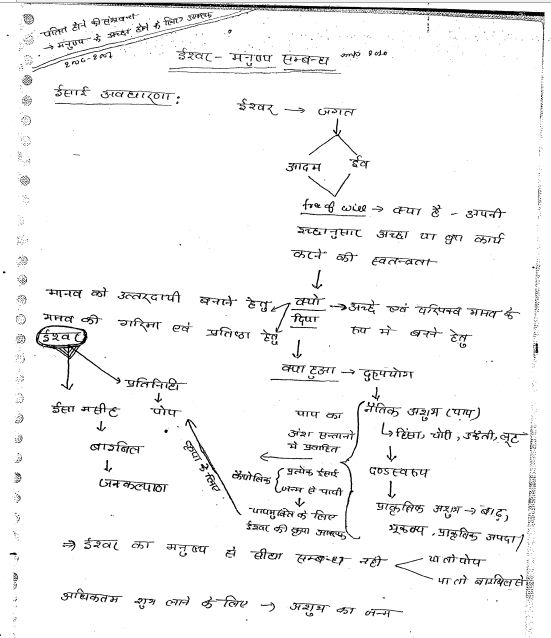 पतित होने की संभावना
→ मनुष्य के अच्छा होने के लिए आवश्यक
2006-2007
ईश्वर - मनुष्य सम्बन्ध
ईसाई अवधारणा :
ईश्वर → जगत
आदम ईव
free of will → क्या है - अपनी
इच्छानुसार अच्छा या बुरा कार्य
करने की स्वतन्त्रता
मानव को उत्तरदायी बनाने हेतु
मानव की गरिमा एवं प्रतिष्ठा हेतु
क्यों
दिया
→ अच्छे एवं परिपक्व मानव के
रूप में बनने हेतु
ईश्वर
क्या हुआ → दुरुपयोग
प्रतिनिधि
ईसा मसीह → पोप
बाइबिल
जनकल्याण
कृपा के लिए
पाप का
अंश सन्तानों
में प्रवाहित
कैथोलिक
प्रत्येक ईसाई
जन्म से पापी
पापमुक्ति के लिए
ईश्वर की कृपा आवश्यक
नैतिक अशुभ (पाप)
हिंसा, चोरी, डकैती, लूट
दण्डस्वरूप
प्राकृतिक अशुभ → बाढ़,
भूकम्प, प्राकृतिक आपदा
⇒ ईश्वर का मनुष्य से सीधा सम्बन्ध नहीं
या तो पोप
या तो बाइबिल से
अधिकतम शुभ लाने के लिए → अशुभ का जन्म